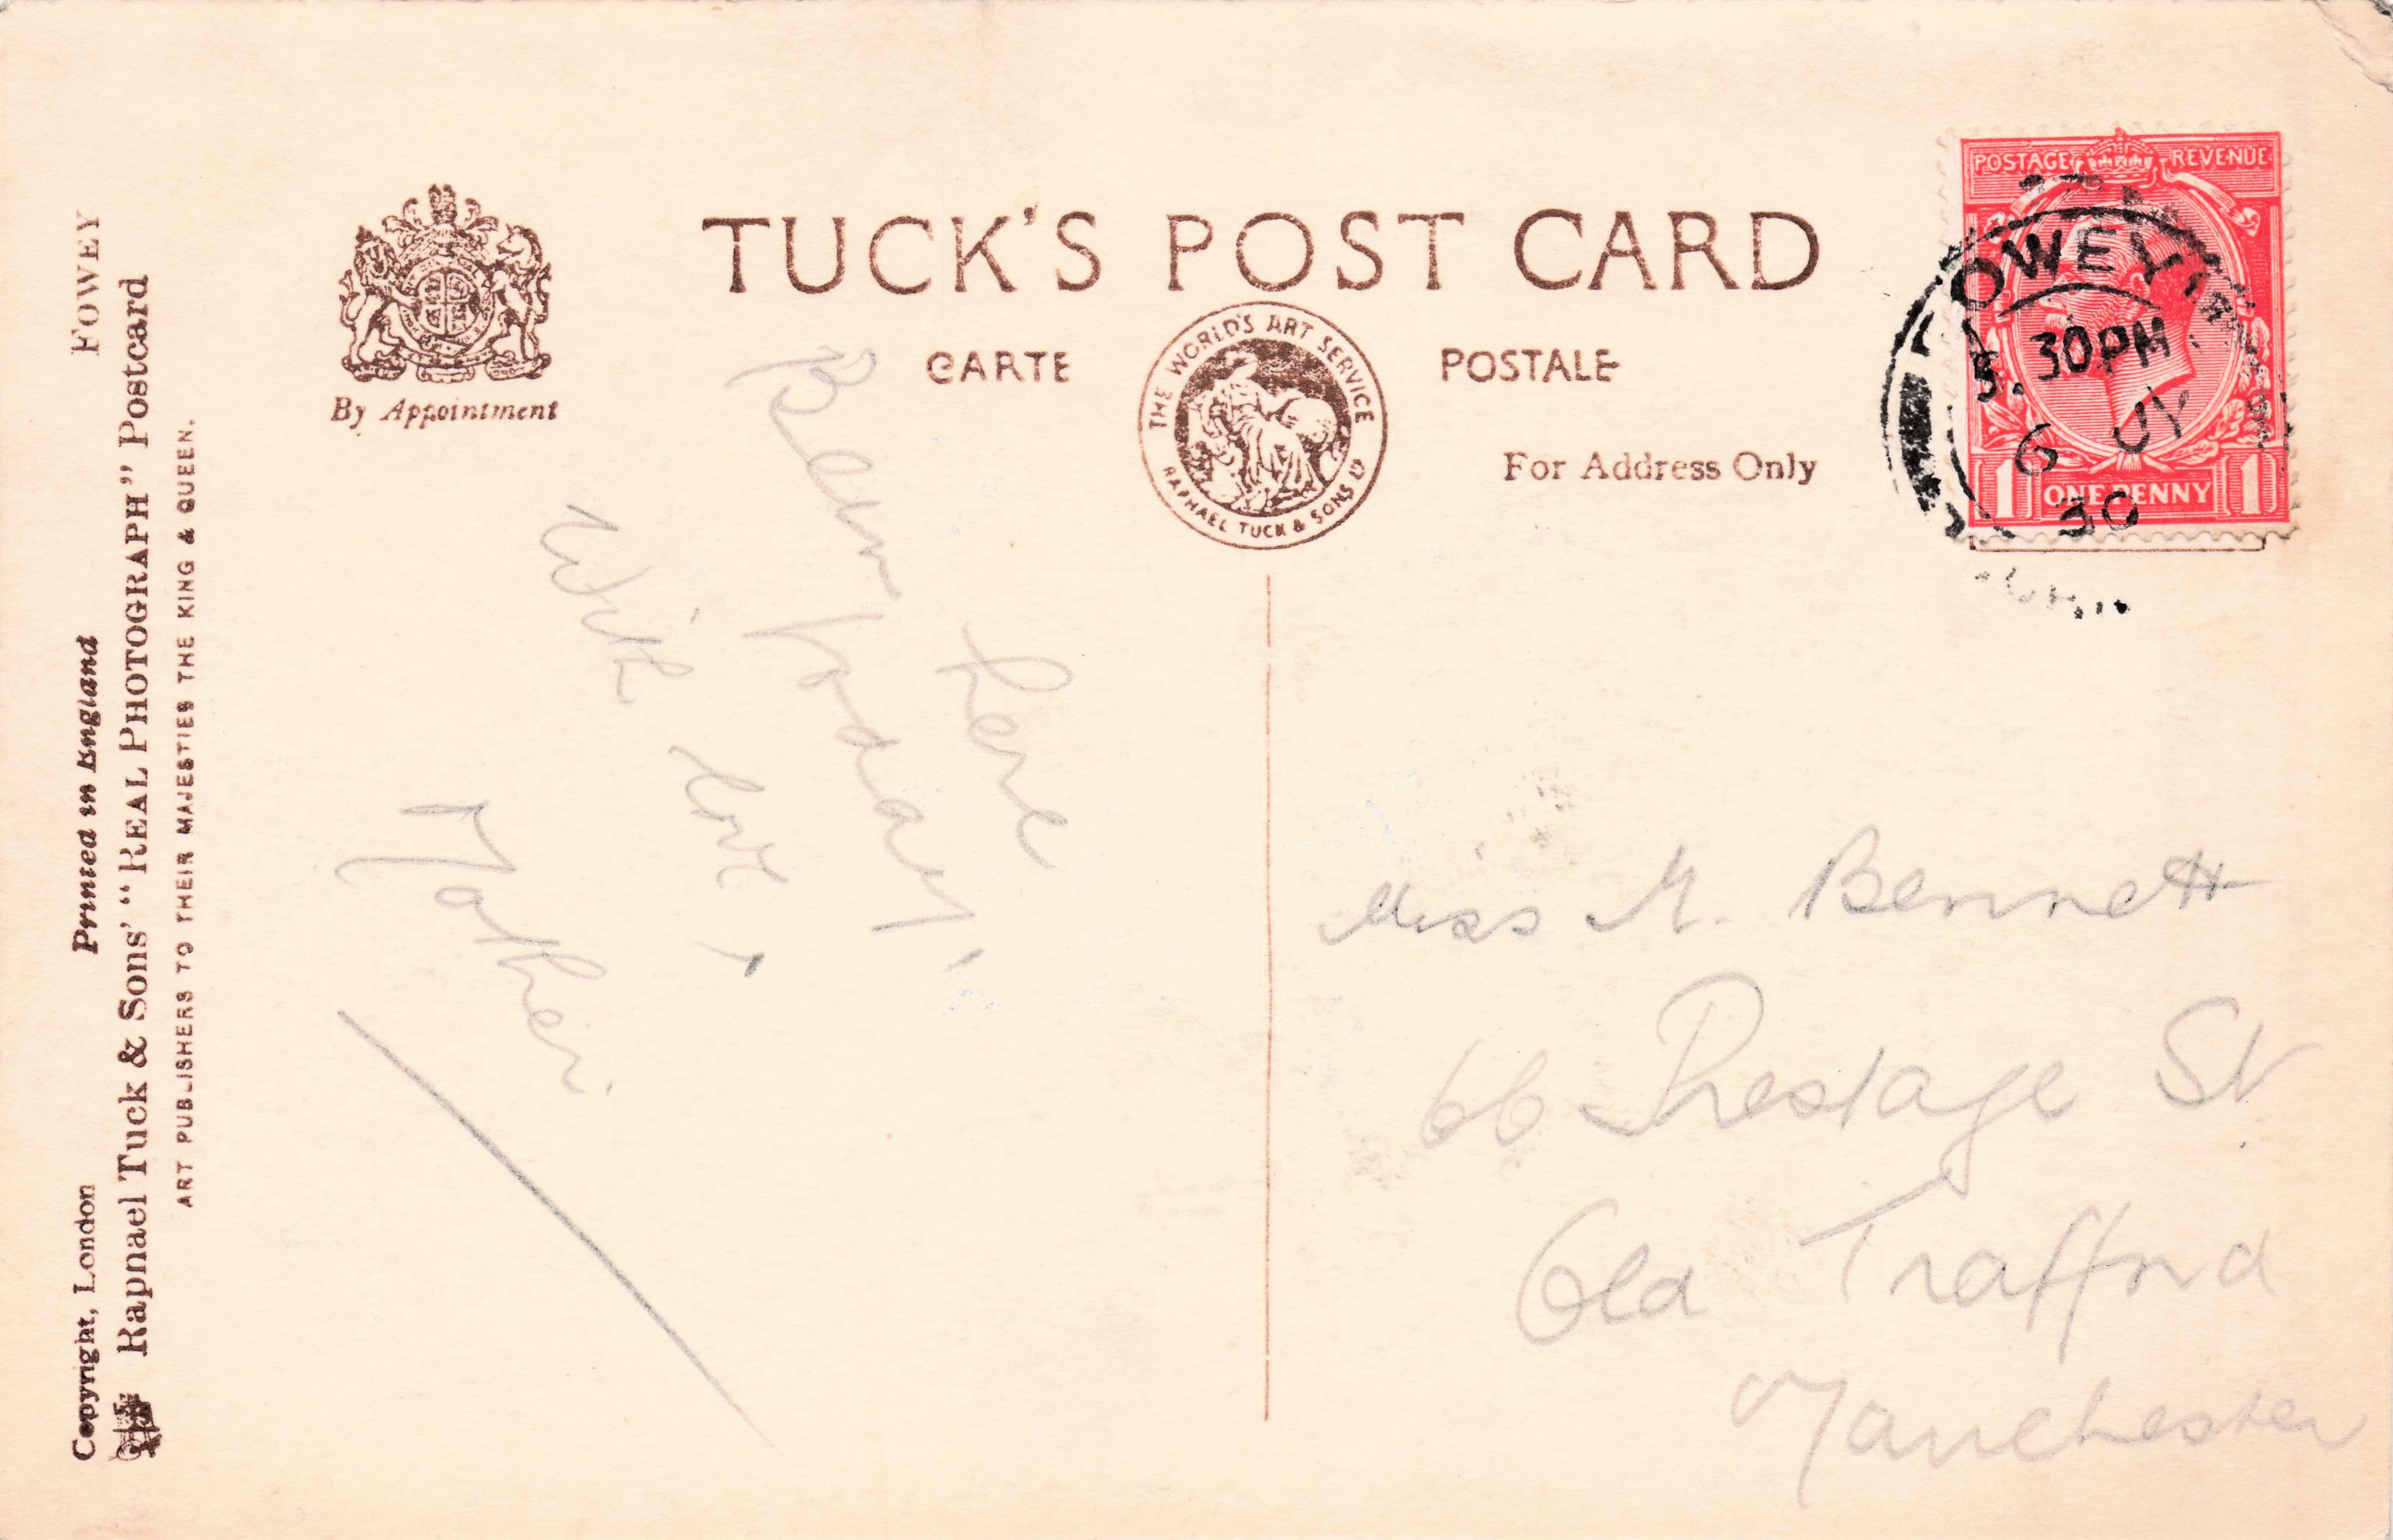 FOWEY
Printed in England
Copyright, London
Raphael Tuck & Sons' "REAL PHOTOGRAPH" Postcard
ART PUBLISHERS TO THEIR MAJESTIES THE KING & QUEEN.
By Appointment
TUCK'S POST CARD
CARTE POSTALE
THE WORLD'S ART SERVICE
RAPHAEL TUCK & SONS LD
For Address Only
POSTAGE REVENUE
ONE PENNY
1 1
OWEY
5.30PM
6 JY
30
Been here
today,
With love,
Mother.
Miss M. Bennett
66 Prestage St
Old Trafford
Manchester